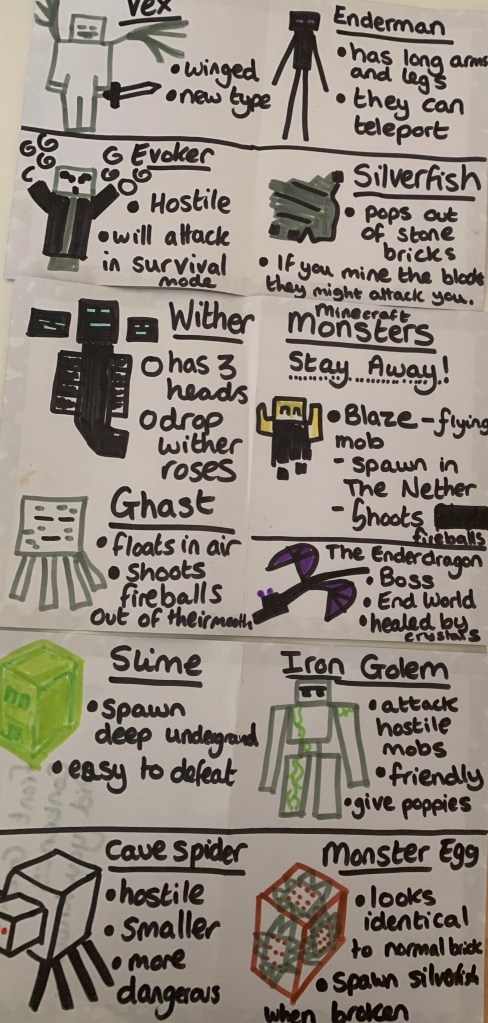 Vex
• winged
• new type
Enderman
• has long arms
and legs
• they can
teleport
Evoker
• Hostile
• will attack
in survival
mode
Silverfish
• pops out
of stone
bricks
• If you mine the blocks
they might attack you.
Wither
has 3
heads
drop
wither
roses
Minecraft
Monsters
Stay Away!
• Blaze - flying
mob
- spawn in
The Nether
- Shoots
fireballs
Ghast
• floats in air
• shoots
fireballs
out of their mouth
The Enderdragon
• Boss
• End World
• healed by
crystals
Slime
• spawn
deep underground
• easy to defeat
Iron Golem
• attack
hostile
mobs
• friendly
• give poppies
Cave spider
• hostile
• smaller
• more
dangerous
Monster Egg
• looks
identical
to normal brick
• Spawn silvefish
when broken